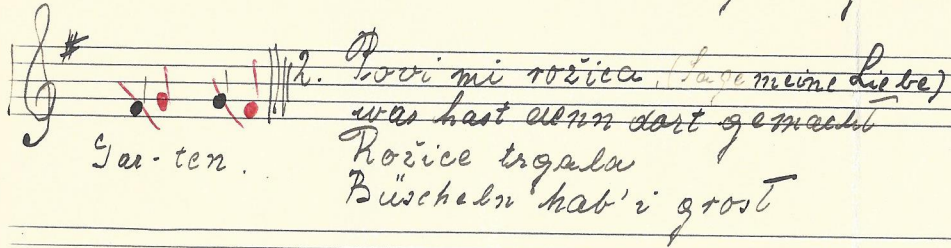 2. Povi mi rožica, (Sage meine Liebe)
was hast denn dort gemacht
Gar-ten.
Rožice trgala
Büscheln hab'i grost